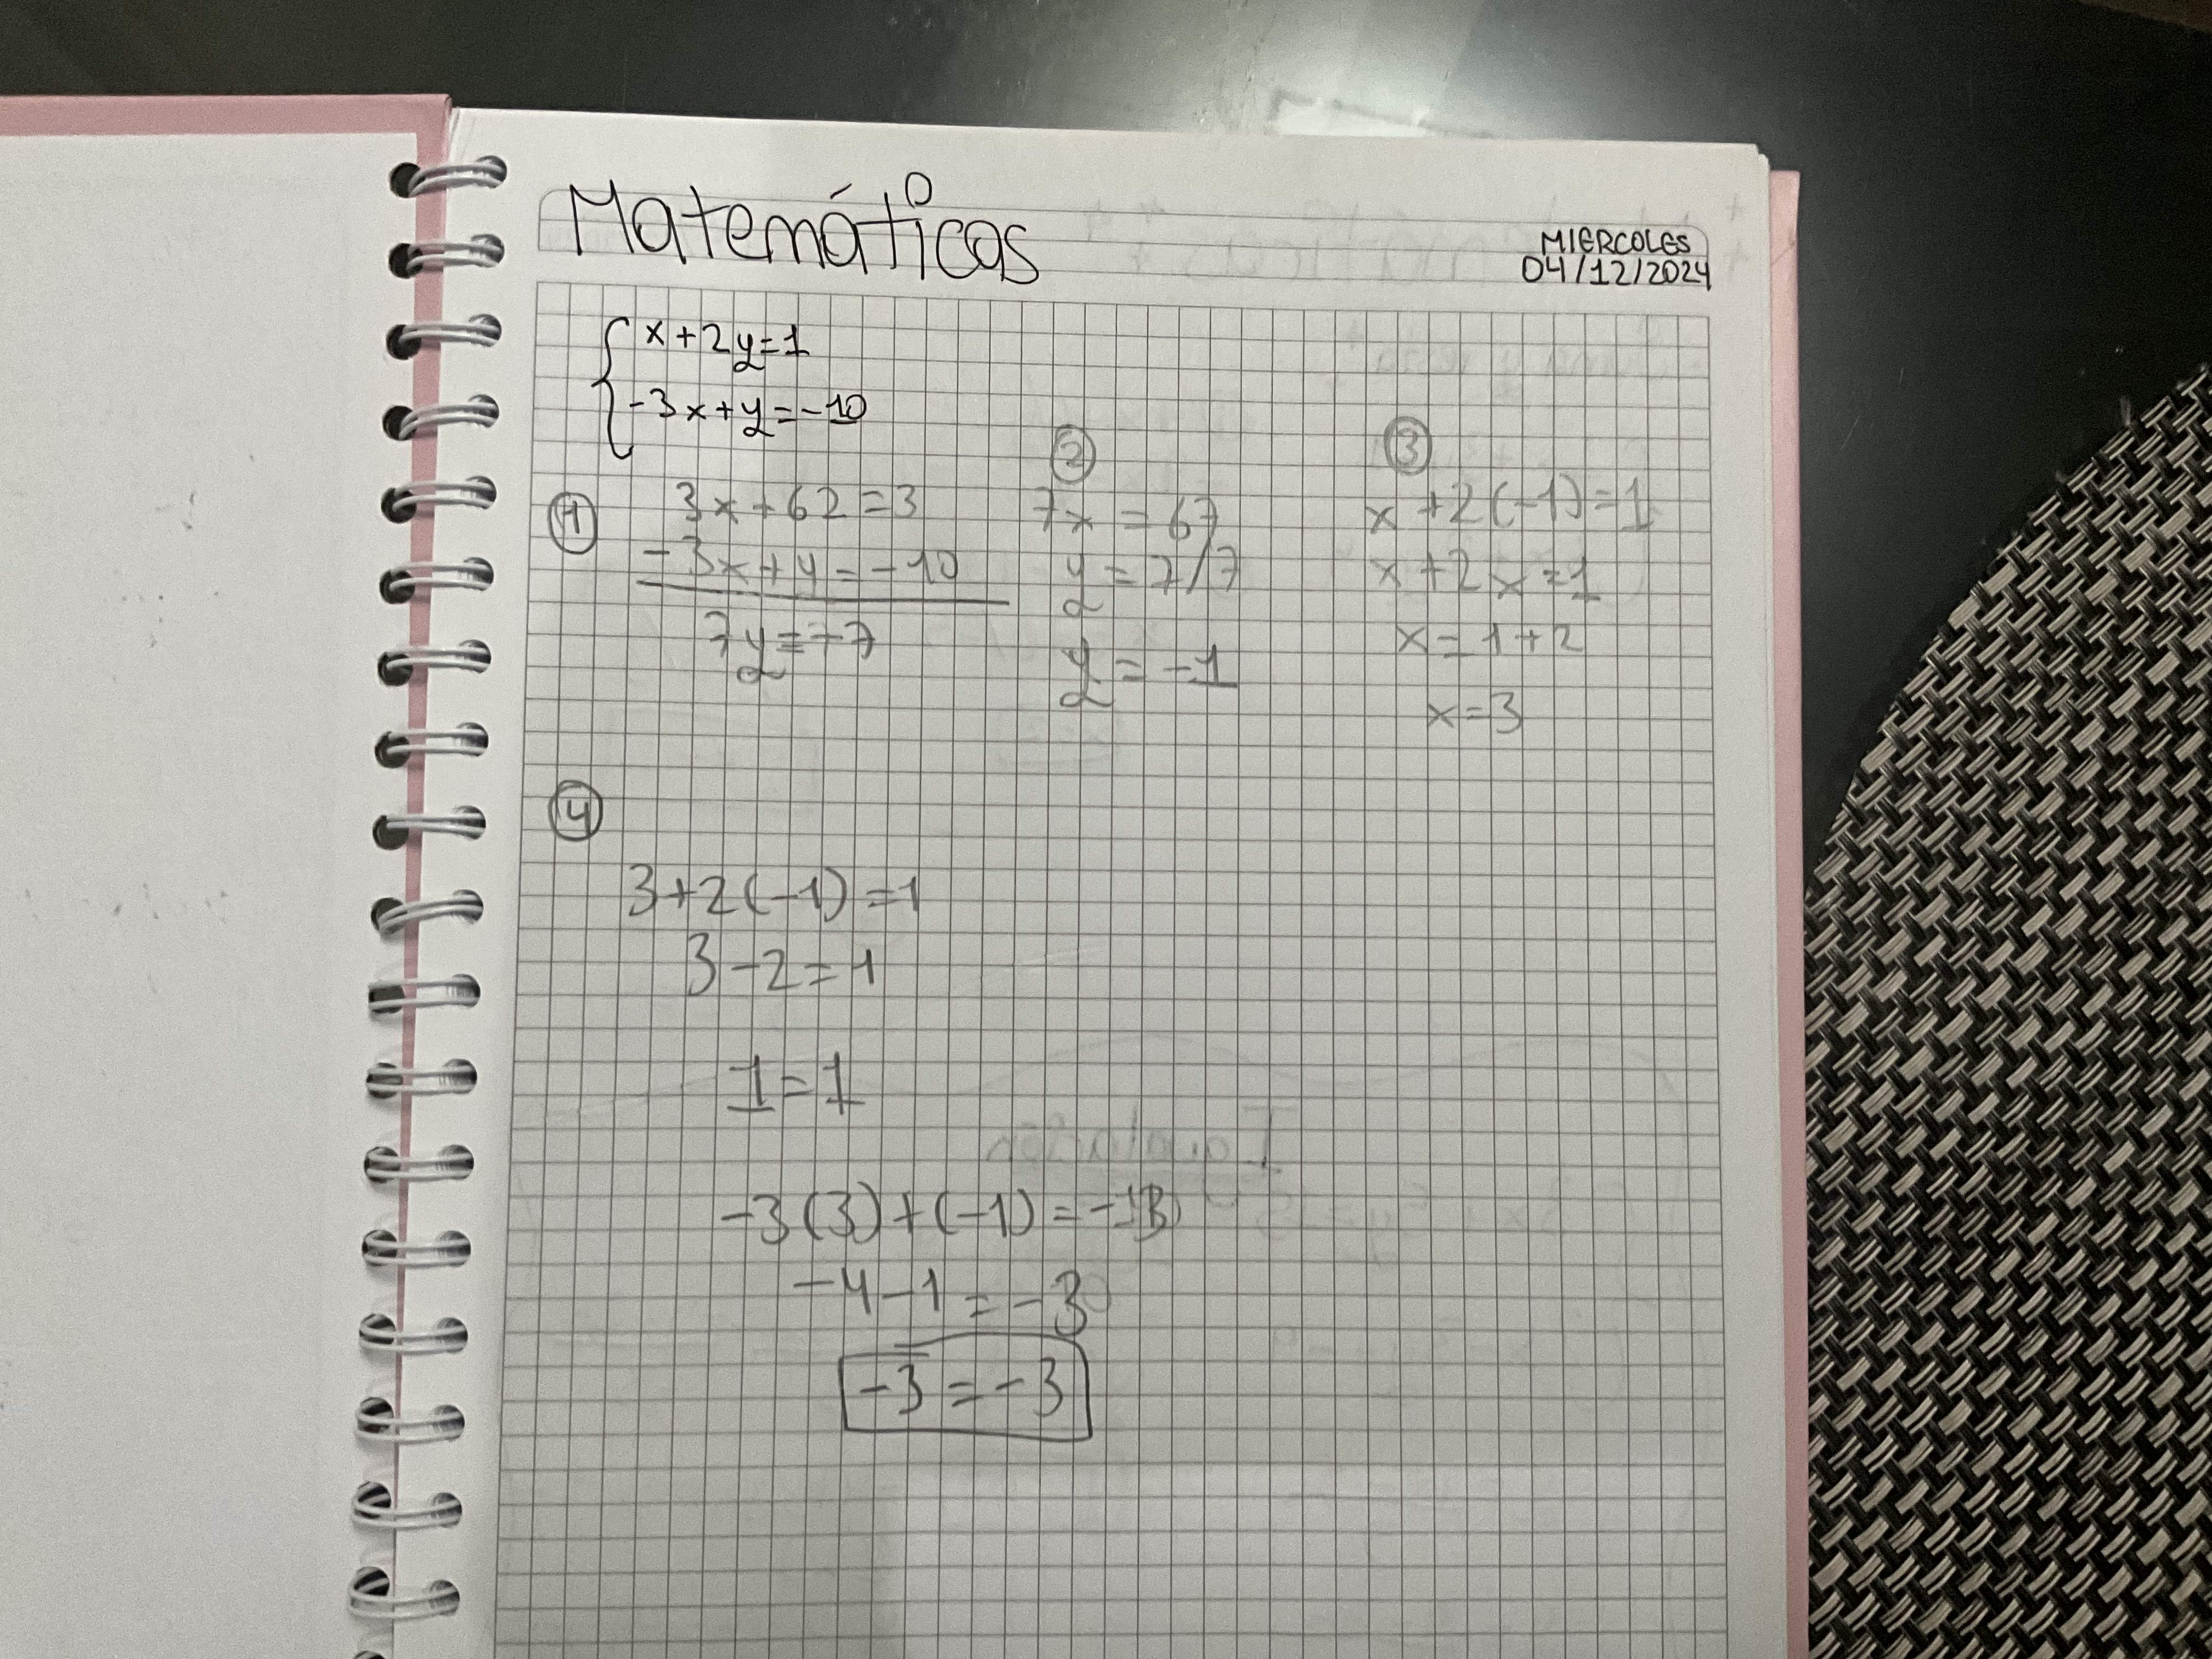 Matemáticas
MIERCOLES
04/12/2024
x+2y=1
-3x+y=-10
①
3x+62=3
-3x+y=-10
7y=-7
②
7x=67
y=7/7
y=-1
③
x+2(-1)=1
x+2x=1
x=1+2
x=3
④
3+2(-1)=1
3-2=1
1=1
-3(3)+(-1)=
-4-1=-3
-3=-3